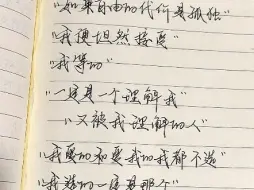 "如果自由的代价是孤独"
"我便坦然接受"
"我等的"
"一定是一个理解我"
"又被我理解的人"
"我爱的和爱我的我都不选"
"我选的一定是那个"